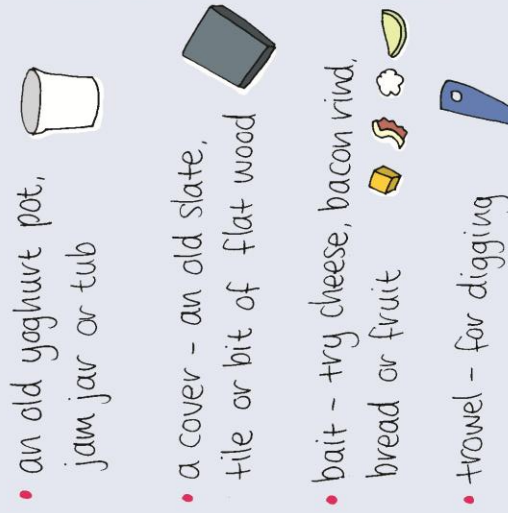 • an old yoghurt pot,
jam jar or tub
• a cover - an old slate,
tile or bit of flat wood
• bait - try cheese, bacon rind,
bread or fruit
• trowel - for digging